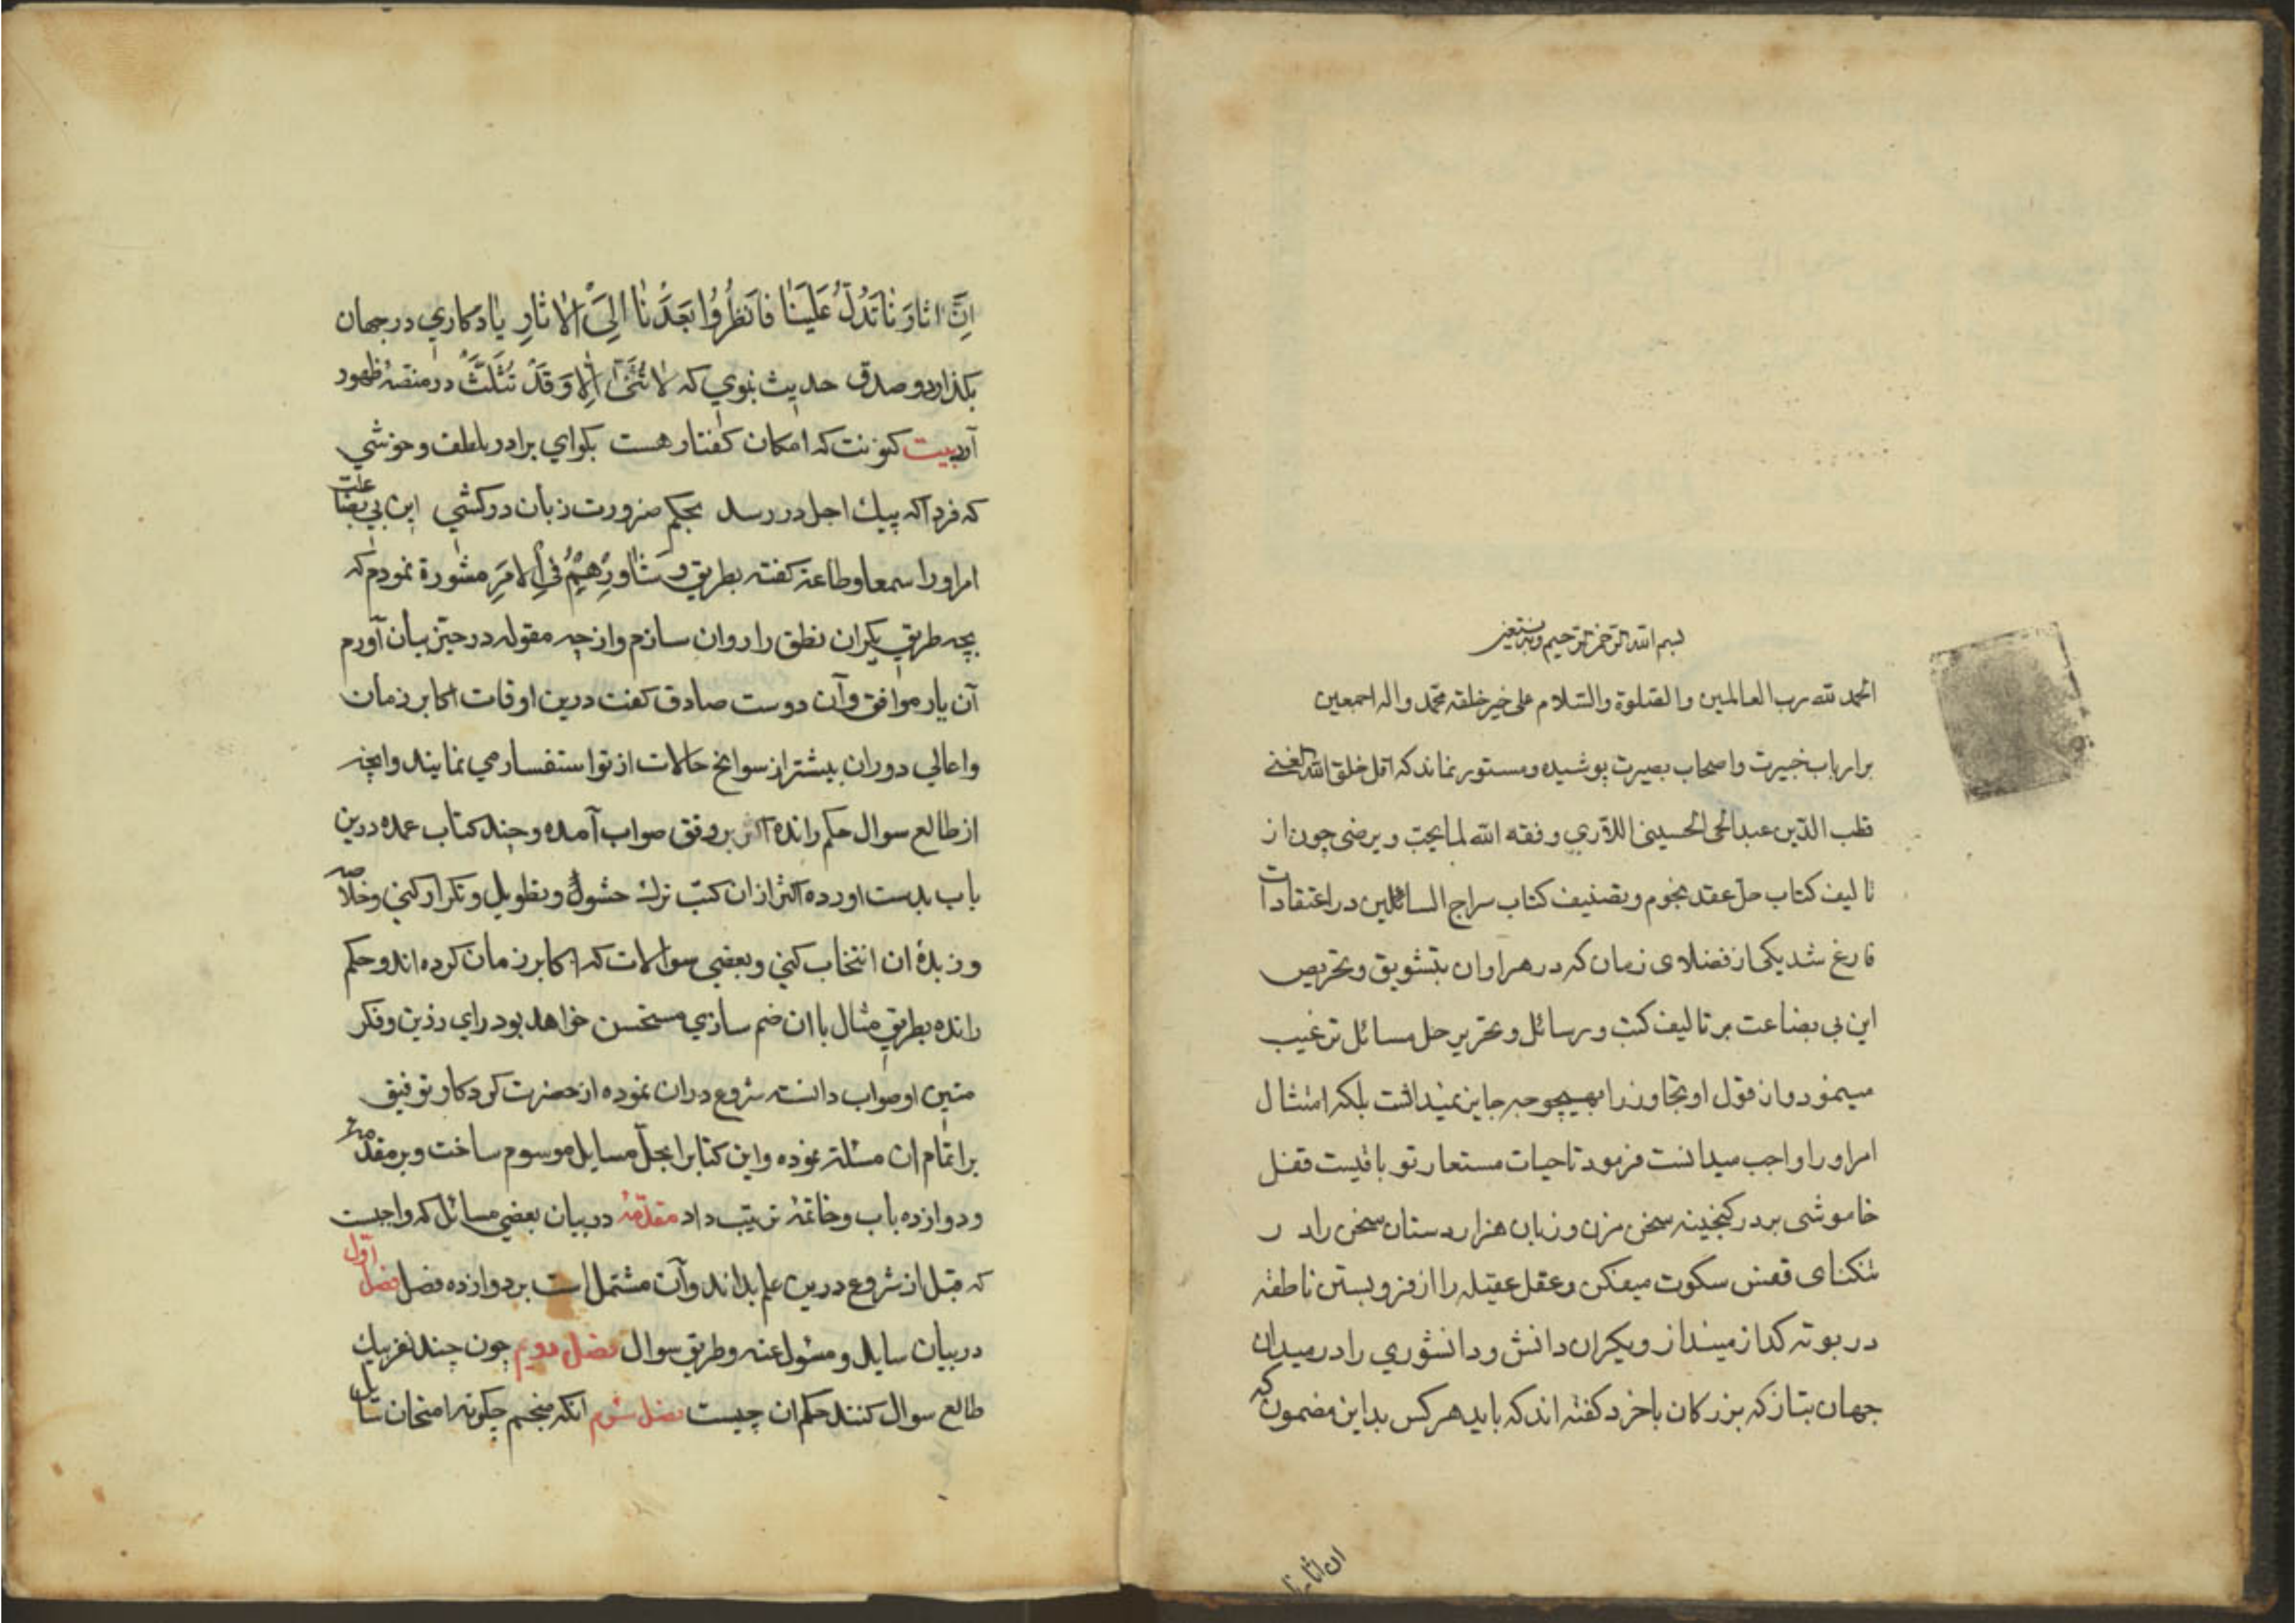 بسم الله الرحمن الرحیم وبه نستعین
الحمد لله رب العالمین والصلوة والسلام علی خیر خلقه محمد واله اجمعین
برارباب خبرت واصحاب بصیرت پوشیده ومستور نماند که اقل خلق الله الغنی
قطب الدین عبدالحی الحسینی اللاری وفقه الله لما یحب ویرضی چون از
تالیف کتاب حل عقد نجوم وتصنیف کتاب سراج السائلین در اعتقادات
فارغ شد یکی از فضلای زمان که در هر اوان بتشویق وتحریص
این بی بضاعت بر تالیف کتب ورسائل وتحریر حل مسائل ترغیب
مینمود واز قول او تجاوز را بهیچوجه جایز نمیداشت بلکه امتثال
امر او را واجب میدانست فرمود تا حیات مستعار تو باقیست قفل
خاموشی بر در کنجینه سخن مزن وزبان هزار دستان سخن را در
تنکنای قفس سکوت میفکن وعقل عقیله را از فرو بستن ناطقه
در بوته کداز مینداز ویکران دانش ودانشوري را در میدان
جهان بتاز که بزرکان باخرد کفته اند که باید هر کس بداین مضمون که
ان اثارنا
اِنَّ اثارَنا تَدُلُّ عَلَینا فَانظُرُوا بَعدَنا اِلَی الاثارِ یادکاري در جهان
بکذارد وصدق حدیث نبوي که لا تُثَنّی اِلا وَقَدْ تُثَلَّثُ در منصهٔ ظهور
آرد بیت کنونت که امکان کفتار هست بکو اي برادر بلطف وخوشي
که فردا که پیك اجل در رسد بحکم ضرورت زبان درکشي این بي بضاعت
امر او را سمعا وطاعة کفته بطریق وَشاوِرْهُمْ فِی الاَمرِ مشورة نمودم که
بچه طریق یکران نطق را روان سازم واز چه مقوله در حیز بیان آورم
آن یار موافق وآن دوست صادق کفت درین اوقات اکابر زمان
واعالي دوران بیشتر از سوانح حالات از تو استفسار مي نمایند وانچه
از طالع سوال حکم رانده اکثر بر وفق صواب آمده وچند کتاب عمده درین
باب بدست اورده اکثر از ان کتب ترك حشو وتطویل وتکرار کني وخلاصه
وزبدهٔ ان انتخاب کني وبعضي سوالات که اکابر زمان کرده اند وحکم
رانده بطریق مثال با ان ضم سازي مستحسن خواهد بود راي رزین وفکر
متین او صواب دانسته شروع دران نموده از حضرت کردکار توفیق
بر اتمام ان مسئلت نموده واین کتابرا بحل مسایل موسوم ساخت وبر مقدمه
ودوازده باب وخاتمهٔ ترتیب داد مقدّمهٔ در بیان بعضي مسائل که واجبست
که قبل از شروع درین علم بدانند وآن مشتمل است بر دوازده فصل فصل اول
در بیان سایل ومسئول عنه وطریق سوال فصل دویم چون چند نفر بیك
طالع سوال کنند حکم ان چیست فصل سوم انکه منجم چکونه امتحان سایل